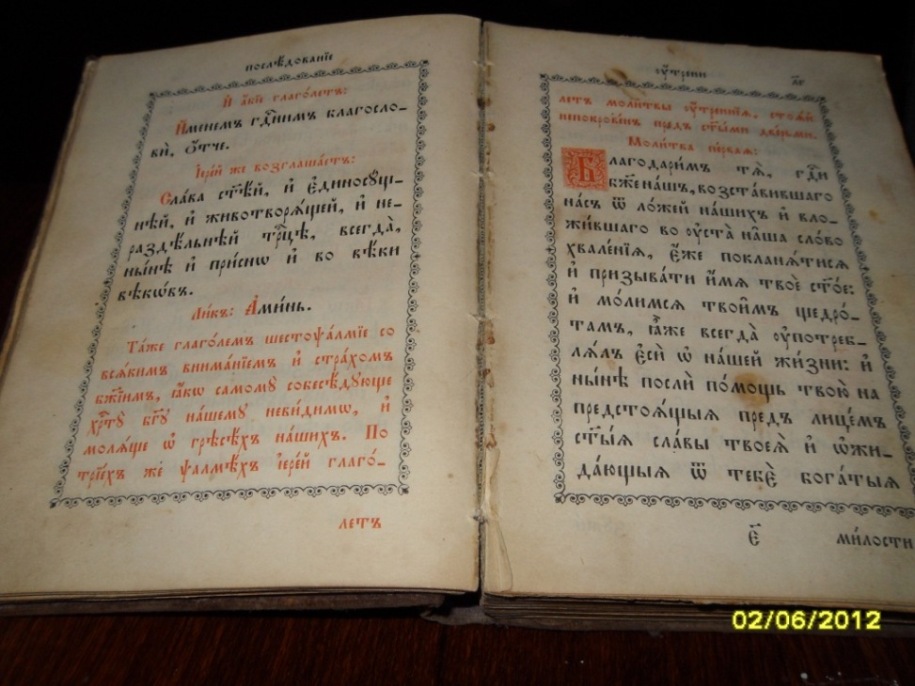 послѣ́дованїе
И҆ а҆́бїе глаго́летъ:
И҆́менемъ гдⷭ҇нимъ благосло-
вѝ, ѻ҆́тче.
І҆ере́й же возглаша́етъ:
Сла́ва ст҃ѣ́й, и҆ є҆диносꙋ́щ-
нѣй, и҆ животворѧ́щей, и҆ не-
раздѣ́льнѣй трⷪ҇цѣ, всегда̀,
ны́нѣ и҆ при́снѡ и҆ во вѣ́ки
вѣкѡ́въ.
Ли́къ: А҆ми́нь.
Та́же глаго́лемъ шестоѱа́лмїе со
всѧ́кимъ внима́нїемъ и҆ стра́хомъ
бж҃їимъ, ꙗ҆́кѡ самомꙋ̀ собесѣ́дꙋюще
хрⷭ҇тꙋ̀ бг҃ꙋ на́шемꙋ неви́димѡ, и҆
молѧ́ще ѡ҆ грѣсѣ́хъ на́шихъ. По
трїе́хъ же ѱалмѣ́хъ і҆ере́й глаго́-
летъ
ᲂу҆́трени
летъ моли́твы ᲂу҆́трєннїѧ, стоѧ́й
непокрове́нъ пред̾ ст҃ы́ми две́рьми.
Моли́тва пе́рваѧ:
Благодари́мъ тѧ̀, гдⷭ҇и
бж҃е на́шъ, возста́вившаго
на́съ ѿ ло́жей на́шихъ и҆ вло-
жи́вшаго во ᲂу҆ста̀ на̑ша сло́во
хвале́нїѧ, є҆́же покланѧ́тисѧ
и҆ призыва́ти и҆́мѧ твоѐ ст҃о́е:
и҆ мо́лимсѧ твои̑мъ щедро́-
тамъ, ꙗ҆̀же всегда̀ ᲂу҆потреб-
лѧ́лъ є҆сѝ ѡ҆ на́шей жи́зни: и҆
ны́нѣ послѝ по́мощь твою̀ на
предстоѧ́щыѧ пред̾ лице́мъ
ст҃ы́ѧ сла́вы твоеѧ̀ и҆ ѡ҆жи-
да́ющыѧ ѿ тебє̀ бога́тыѧ
є҃
ми́лости
02/06/2012